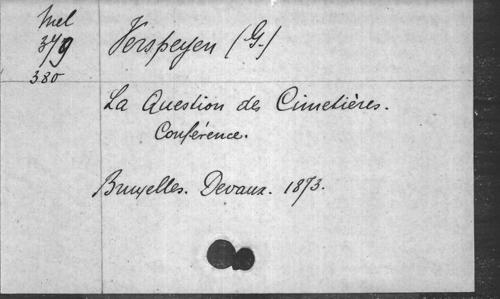 Mel
379
380
Verspeyen (G.)
La Question des Cimetières.
Conférence.
Bruxelles. Devaux. 1873.